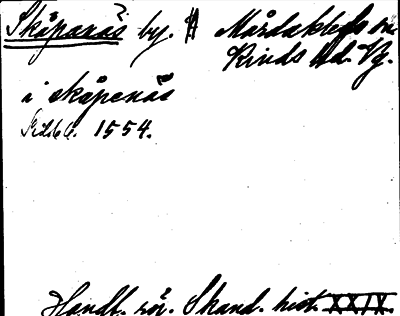 Skåpanäs? by. Mårdaklefs sn.
Kinds hd. Vg.
i skåpenäs
1554.
Handl. rör. Skand. hist. XXIX.